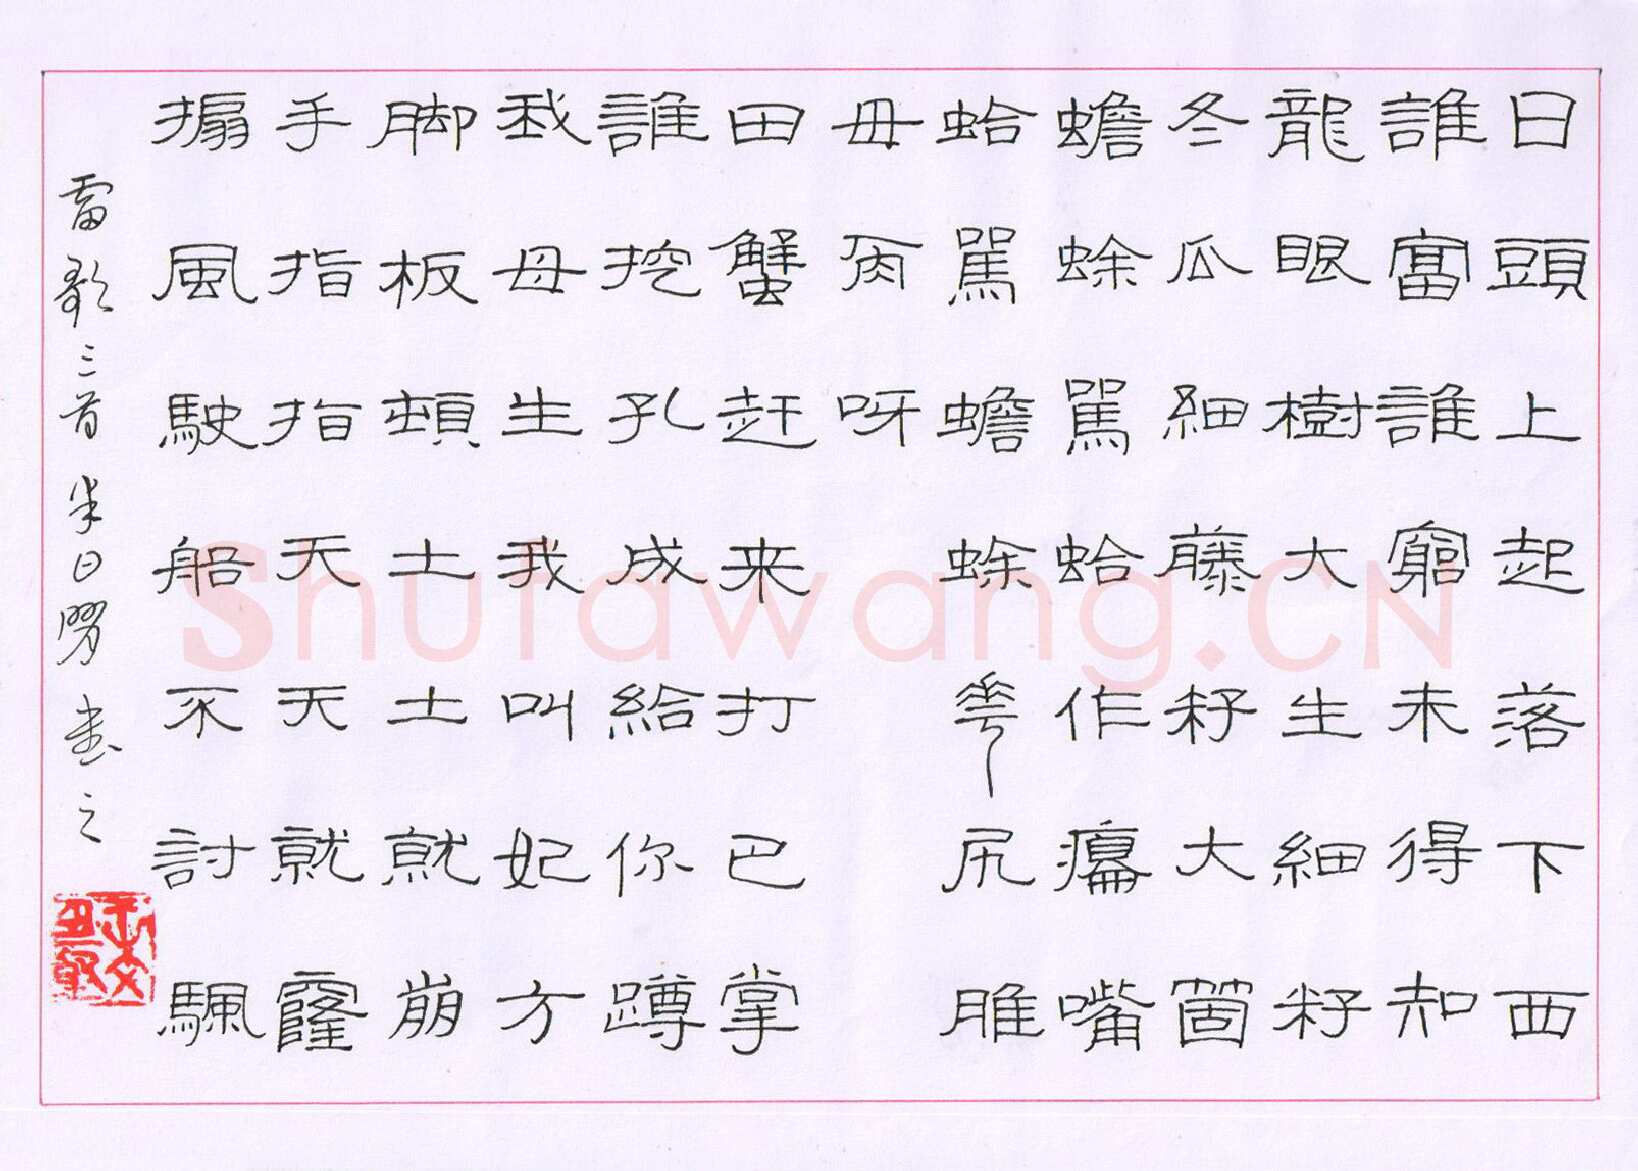 日頭上起落下西
誰富誰窮未得知
龍眼樹大生細籽
冬瓜細藤籽大箇
蟾蜍罵蛤作癟嘴
蛤罵蟾蜍花尻脽
毋呀
田蟹赶来打巴掌
誰挖孔成給你蹲
我母生我叫妃方
脚板頓土土就崩
手指指天天就窿
搧風駛船不討颿
雷歌三首半日書之
Shufawang.CN